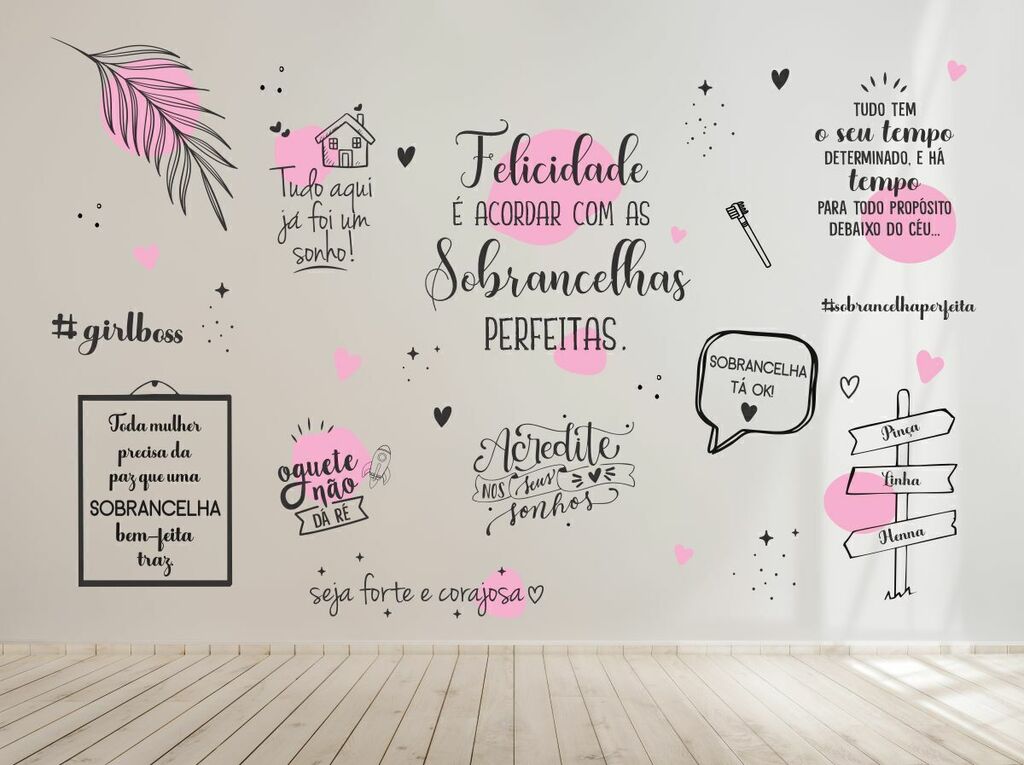 Tudo aqui
já foi um
sonho!
Felicidade
É ACORDAR COM AS
Sobrancelhas
PERFEITAS.
TUDO TEM
o seu tempo
DETERMINADO, E HÁ
tempo
PARA TODO PROPÓSITO
DEBAIXO DO CÉU...
#girlboss
#sobrancelhaperfeita
Toda mulher
precisa da
paz que uma
SOBRANCELHA
bem-feita
traz.
oguete
não
DÁ RÉ
Acredite
NOS seus
sonhos
SOBRANCELHA
TÁ OK!
Pinça
Linha
Henna
seja forte e corajosa